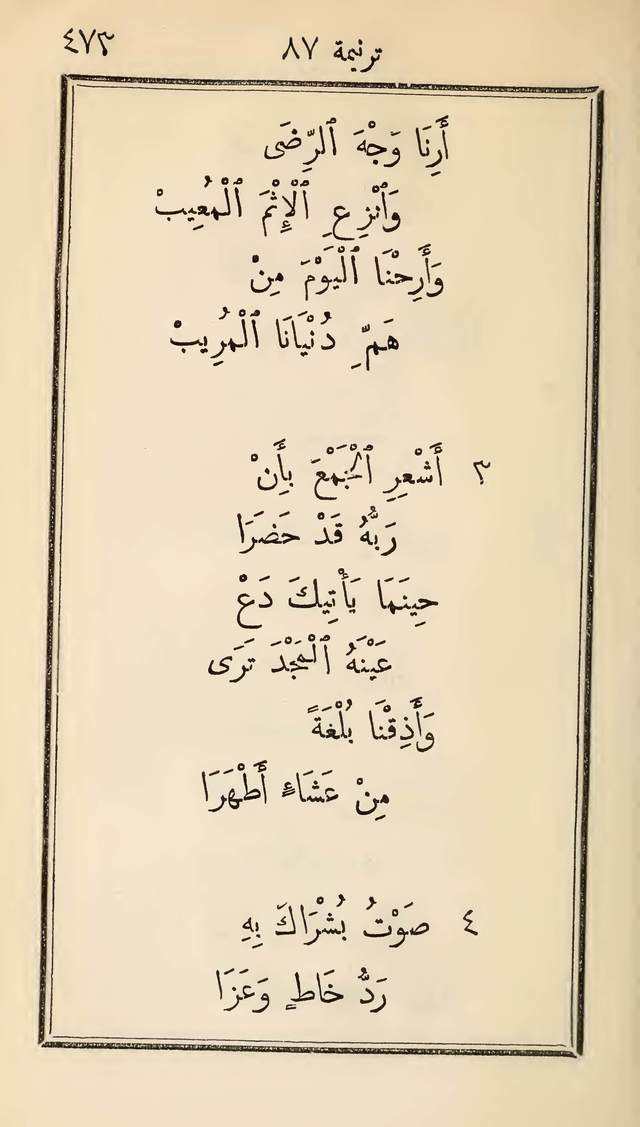 ترنيمة ٨٧ ٤٧٣
أَرِنَا وَجْهَ ٱلرِّضَى
وَٱنْزِعِ ٱلْإِثْمَ ٱلْمُعِيبْ
وَأَرِحْنَا ٱلْيَوْمَ مِنْ
هَمِّ دُنْيَانَا ٱلْمُرِيبْ
٣ أَشْعِرِ ٱلْجَمْعَ بِأَنْ
رَبُّهُ قَدْ حَضَرَا
حِينَمَا يَأْتِيكَ دَعْ
عَيْنَهُ ٱلْمَجْدَ تَرَى
وَأَذِقْنَا بُلْغَةً
مِنْ عَشَاءٍ أَطْهَرَا
٤ صَوْتُ بُشْرَاكَ بِهِ
رَدُّ خَاطٍ وَعَزَا